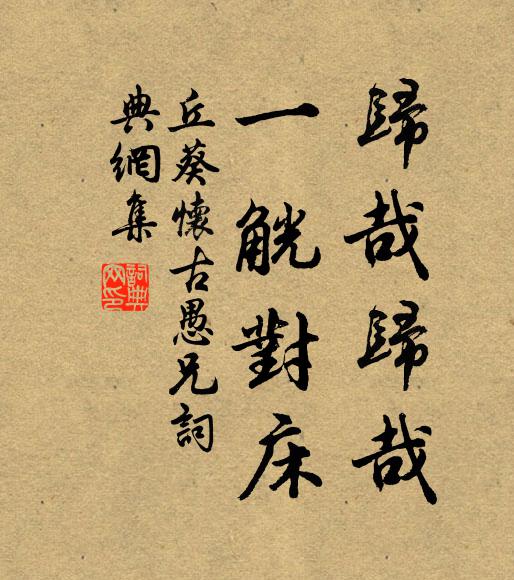 歸哉歸哉
一觥對床
丘葵懷古愚兄詞
典網集
詞典網印